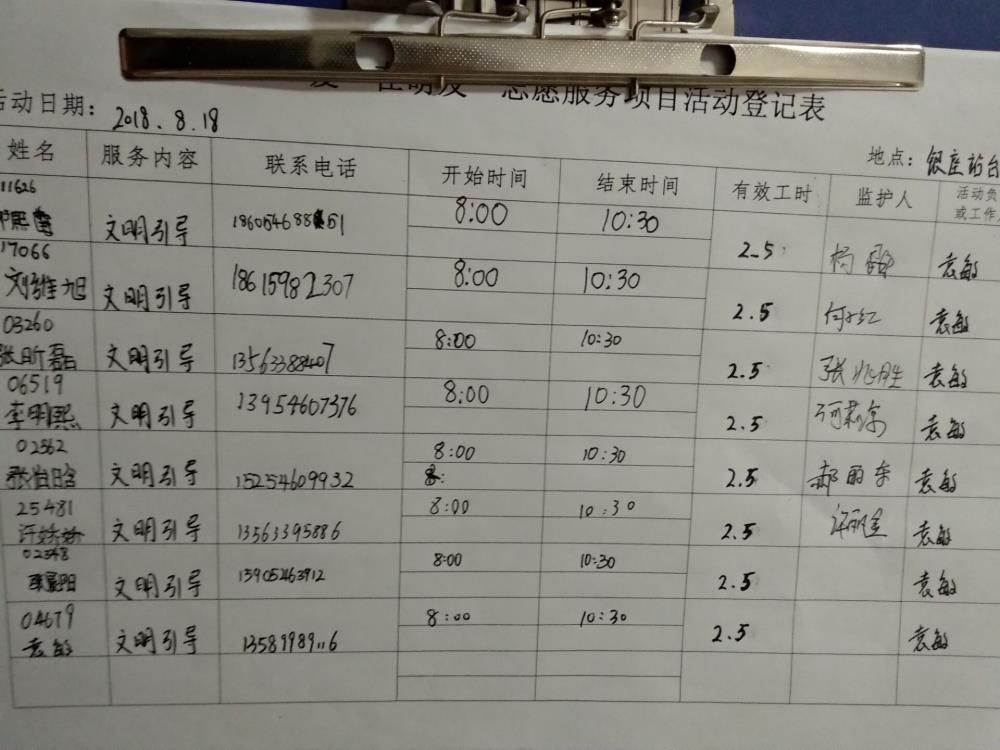 志愿服务项目活动登记表
活动日期: 2018.8.18
地点: 银座站台
姓名 服务内容 联系电话 开始时间 结束时间 有效工时 监护人 活动负
或工作
11626
文明引导 8:00 10:30 2.5 袁敏
17066
刘维旭 文明引导 18615982307 8:00 10:30 2.5 何小红 袁敏
03260
张昕磊 文明引导 13563388407 8:00 10:30 2.5 张兆胜 袁敏
06519
李明熙 文明引导 13954607376 8:00 10:30 2.5 袁敏
02562
文明引导 15254609932 8:00 10:30 2.5 袁敏
8:
25481
许娇娇 文明引导 13563395886 8:00 10:30 2.5 袁敏
02348
文明引导 13905463912 8:00 10:30 2.5 袁敏
04679
袁敏 文明引导 8:00 10:30 2.5 袁敏